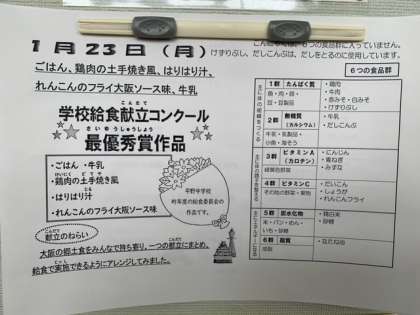 1月23日(月)
こんだては、6つの食品群に入っていません。
けずりぶし、だしこんぶは、だしをとるのに使用しています。
ごはん、鶏肉の土手焼き風、はりはり汁、
れんこんのフライ大阪ソース味、牛乳
こんだて
学校給食献立コンクール
さいゆうしゅうしょう
最優秀賞作品
・ごはん ・牛乳
けいにく どてや
・鶏肉の土手焼き風
・はりはり汁
・れんこんのフライ大阪ソース味
平野中学校
昨年度の給食委員会の
作品です。
こんだて
献立のねらい
大阪の郷土食をみんなで持ち寄り、一つの献立にまとめ、
給食で実施できるようにアレンジしてみました。
6つの食品群
1群 たんぱく質
魚・肉・卵・
豆・豆製品
・鶏肉
・牛肉
・赤みそ・白みそ
・けずりぶし
2群 無機質
(カルシウム)
牛乳・乳製品・
小魚・海そう
・牛乳
・だしこんぶ
3群 ビタミンA
(カロテン)
緑黄色野菜
・にんじん
・青ねぎ
・みずな
4群 ビタミンC
その他の野菜・果物
・だいこん
・しょうが
・れんこんフライ
5群 炭水化物
米・パン・めん・
いも・砂糖
・精白米
・砂糖
6群 脂質
油脂
・なたね油